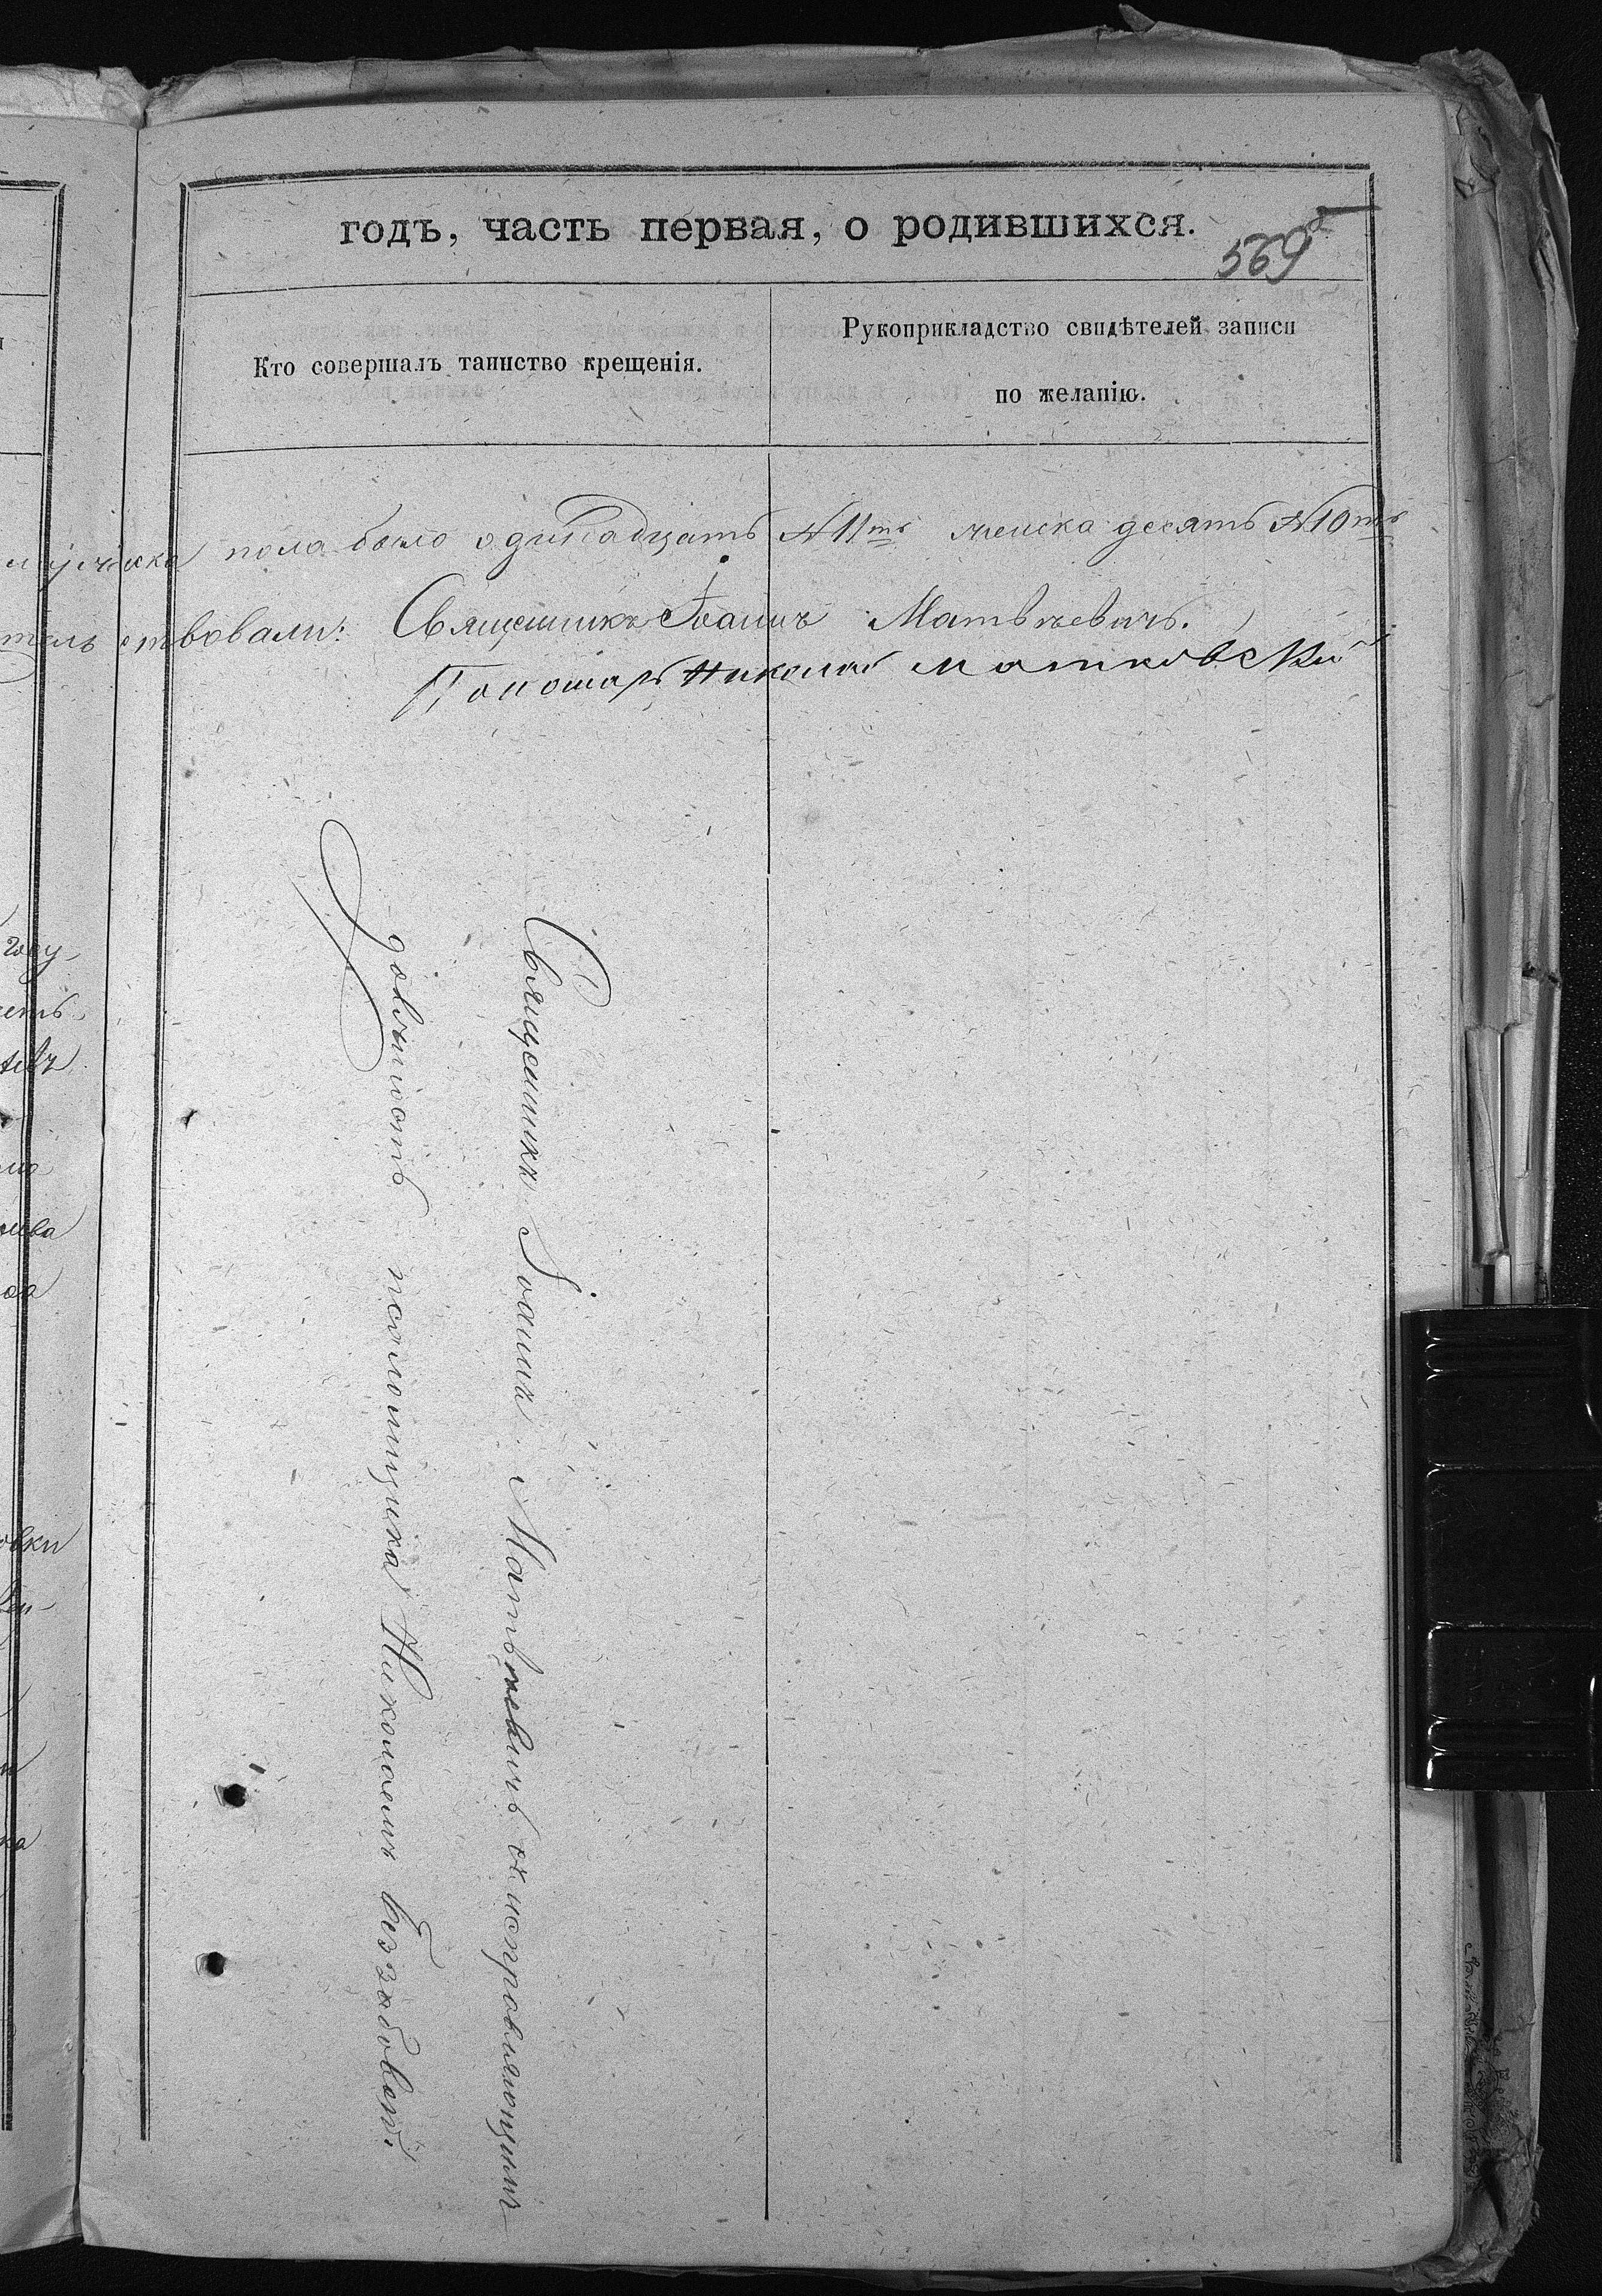 годъ, часть первая, о родившихся.
569
Кто совершалъ таинство крещенія.
Рукоприкладство свидѣтелей записи
по желанію.
мужеска пола было одинадцать №11ть женска десять №10ть
ствовали: Священникъ Іоаннъ Матвѣевичъ.
Пономарь Николай Матковскій
Священникъ Іоаннъ Матвѣевичъ съ исправляющимъ
должность псаломщика Николаемъ
году
овки